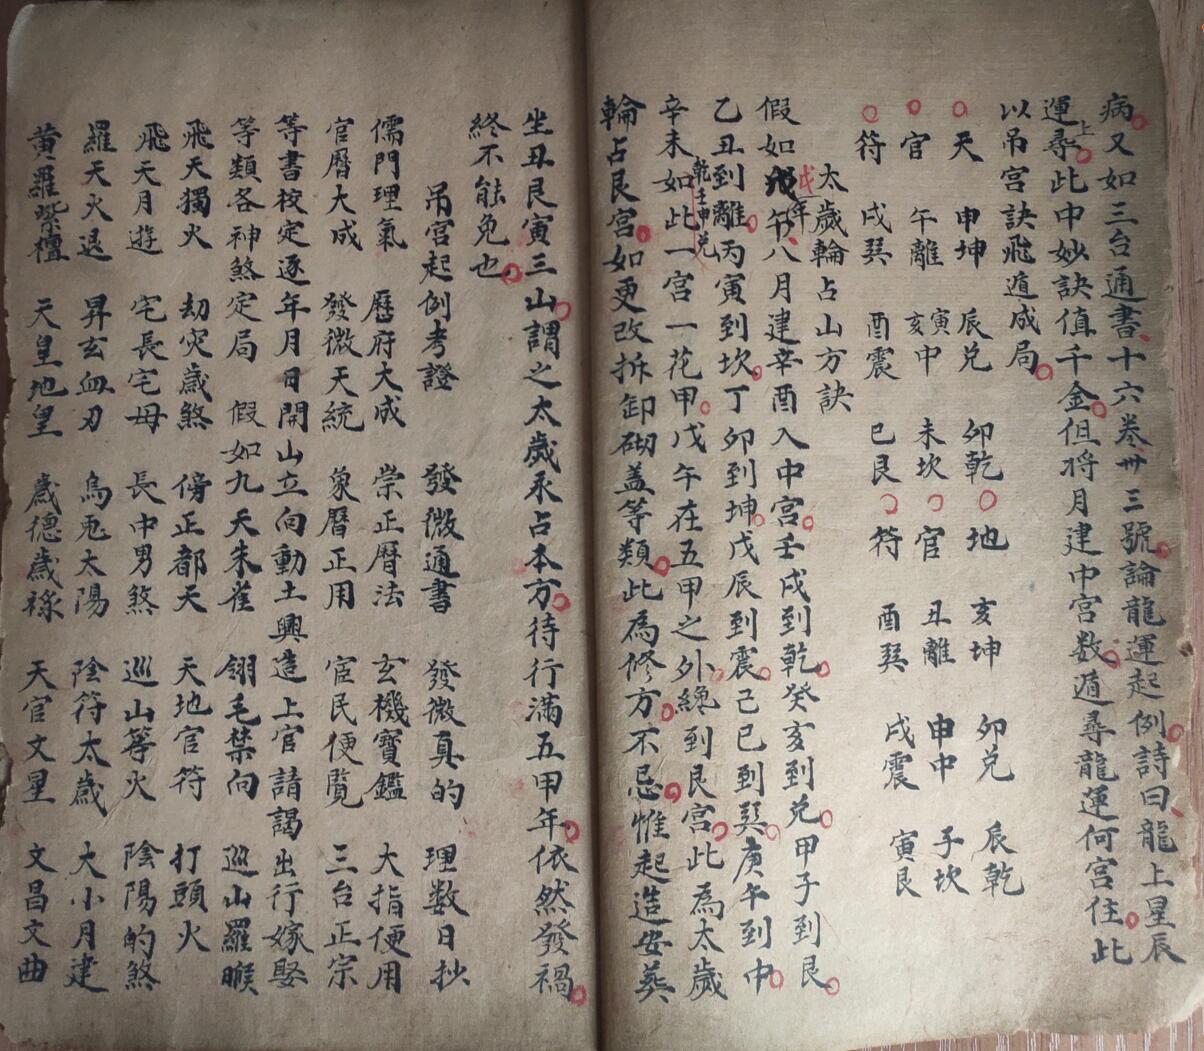 病又如三台通書十六卷卅三號論龍運起例詩曰龍上星辰
運上尋此中妙訣值千金但将月建中宮数遁尋龍運何宮住此
以吊宮訣飛遁成局
天 申坤 辰兑 卯乾 地 亥坤 卯兑 辰乾
官 午離 寅亥中 未坎 官 丑離 申中 子坎
符 戌巽 酉震 巳艮 符 酉巽 戌震 寅艮
太歲輪占山方訣
假如戊午年八月建辛酉入中宮壬戌到乾癸亥到兑甲子到艮
乙丑到離丙寅到坎丁卯到坤戊辰到震己巳到巽庚午到中
辛未乾壬申兑如此一宮一花甲戊午在五甲之外總到艮宮此為太歲
輪占艮宮如更改拆卸砌盖等類此為修方不忌惟起造安葬
坐丑艮寅三山謂之太歲永占本方待行滿五甲年依然發禍
終不能免也
吊宮起例考證 發微通書 發微真的 理数日抄
儒門理氣 歷府大成 崇正暦法 玄機寶鑑 大指便用
官暦大成 發微天統 象暦正用 宦民便覧 三台正宗
等書校定逐年月日開山立向動土興造上官請謁出行嫁娶
等類各神煞定局 假如九天朱雀 翎毛禁向 巡山羅睺
飛天獨火 劫灾歲煞 傍正都天 天地官符 打頭火
飛天月遊 宅長宅母 長中男煞 巡山等火 陰陽的煞
羅天火退 昇玄血刃 烏兎太陽 陰符太歲 大小月建
黄羅紫檀 天皇地皇 歲德歲祿 天官文星 文昌文曲